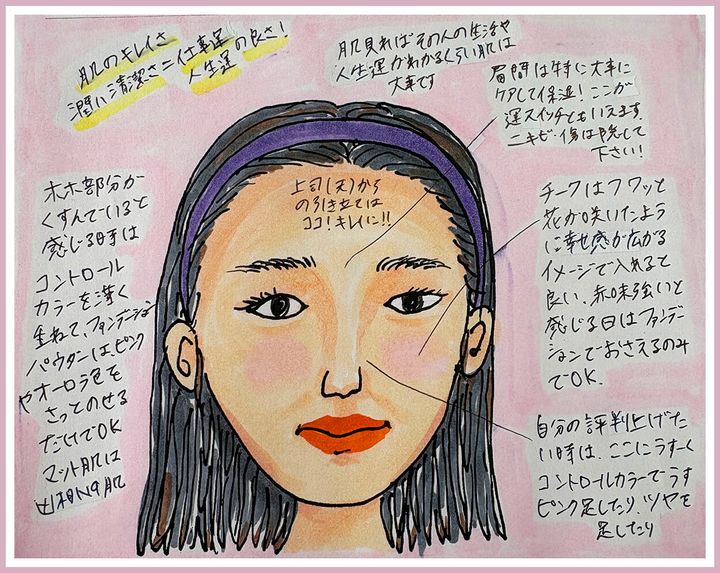 肌のキレイさ
潤い清潔さ=仕事運
人生運の良さ!
肌見ればその人の生活や
人生運がわかるくらい肌は
大事です
眉間は特に大事に
ケアして保湿!ここが
運スイッチともいえます
ニキビ・傷は隠して
下さい!
上司(天)から
の引き立ては
ココ!キレイに!!
ホホ部分が
くすんでいると
感じる時は
コントロール
カラーを薄く
重ねて、ファンデーション
パウダーはピンク
やオーロラ色を
さっとのせる
だけでOK
マット肌は
出相NG肌
チークはフワッと
花が咲いたよう
に幸せ感が広がる
イメージで入れると
良い、赤味強いと
感じる日はファンデー
ションでおさえるのみ
でOK.
自分の評判上げた
い時は、ここにうすーく
コントロールカラーでうす
ピンク足したり、ツヤを
足したり